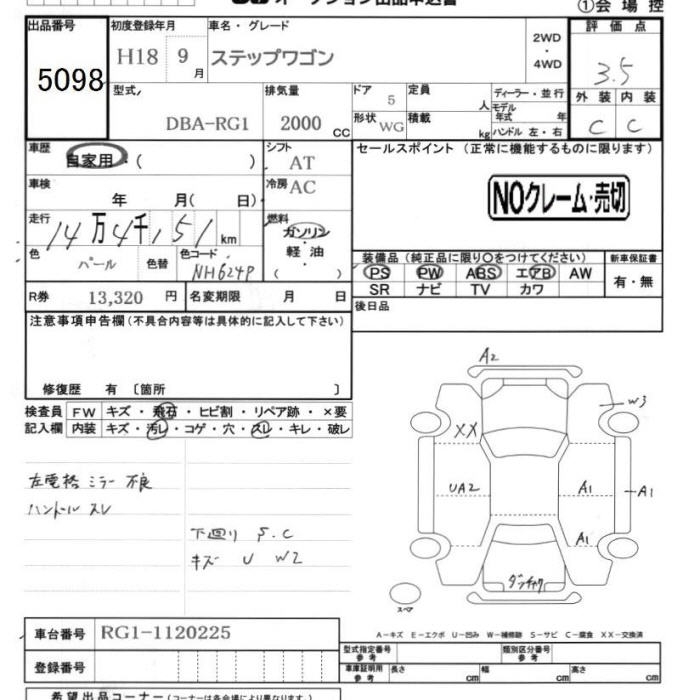 ①会場控
出品番号
初度登録年月
車名・グレード
評価点
5098
H18 9月
ステップワゴン
2WD
・
4WD
3.5
型式
DBA-RG1
排気量
2000 CC
ドア 5
形状 WG
定員 人
積載 kg
ディーラー・並行
モデル年式 年
ハンドル 左・右
外装 内装
C C
車歴
自家用・( )
シフト AT
セールスポイント (正常に機能するものに限ります)
車検 年 月( 日)
冷房 AC
NOクレーム・売切
走行 14万4千151km
燃料
ガソリン
・
軽油
( )
色 パール 色替
色コード NH624P
装備品(純正品に限り〇をつけてください)
新車保証書
PS PW ABS エアB AW
SR ナビ TV カワ
有・無
R券 13,320 円
名変期限 月 日
後日品
注意事項申告欄(不具合内容等は具体的に記入して下さい)
修復歴 有 〔箇所 〕
検査員
記入欄
FW キズ・飛石・ヒビ割・リペア跡・×要
内装 キズ・汚レ・コゲ・穴・スレ・キレ・破レ
A2
W3
XX
UA2
A1
A1
A1
左電格ミラー不良
ハンドルスレ
下回り S.C
キズ U W2
スペア
車台番号 RG1-1120225
A-キズ E-エクボ U-凹み W-補修跡 S-サビ C-腐食 XX-交換済
登録番号
型式指定番号 参考
類別区分番号 参考
車庫証明用 参考
長さ cm 幅 cm 高さ cm
希望出品コーナー(コーナーは各会場により異なります。)